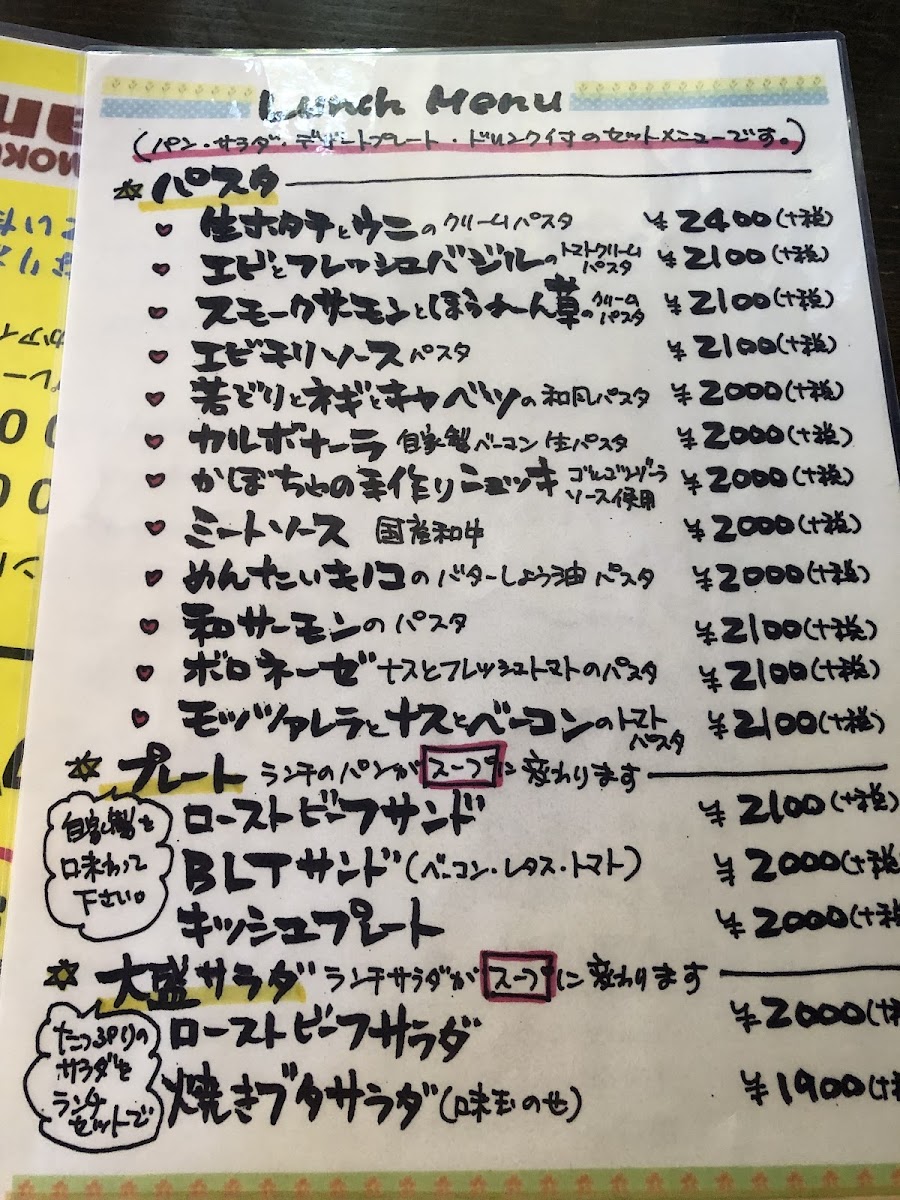 Lunch Menu
(パン・サラダ・デザートプレート・ドリンク付のセットメニューです。)
パスタ
生ホタテとウニのクリームパスタ ¥2400(+税)
エビとフレッシュバジルのトマトクリームパスタ ¥2100(+税)
スモークサーモンとほうれん草のクリームパスタ ¥2100(+税)
エビチリソースパスタ ¥2100(+税)
若どりとネギとキャベツの和風パスタ ¥2000(+税)
カルボナーラ 自家製ベーコン 生パスタ ¥2000(+税)
かぼちゃの手作りニョッキ ゴルゴンゾーラソース使用 ¥2000(+税)
ミートソース 国産和牛 ¥2000(+税)
めんたいキノコのバターしょう油パスタ ¥2000(+税)
和サーモンのパスタ ¥2100(+税)
ボロネーゼ ナスとフレッシュトマトのパスタ ¥2100(+税)
モッツァレラとナスとベーコンのトマトパスタ ¥2100(+税)
プレート ランチのパンがスープに変わります
自家製を
味わって
下さい。
ローストビーフサンド ¥2100(+税)
BLTサンド(ベーコン・レタス・トマト) ¥2000(+税
キッシュプレート ¥2000(+税
大盛サラダ ランチサラダがスープに変わります
たっぷりの
サラダを
ランチ
セットで
ローストビーフサラダ ¥2000(+税
焼きブタサラダ(味玉のせ) ¥1900(+